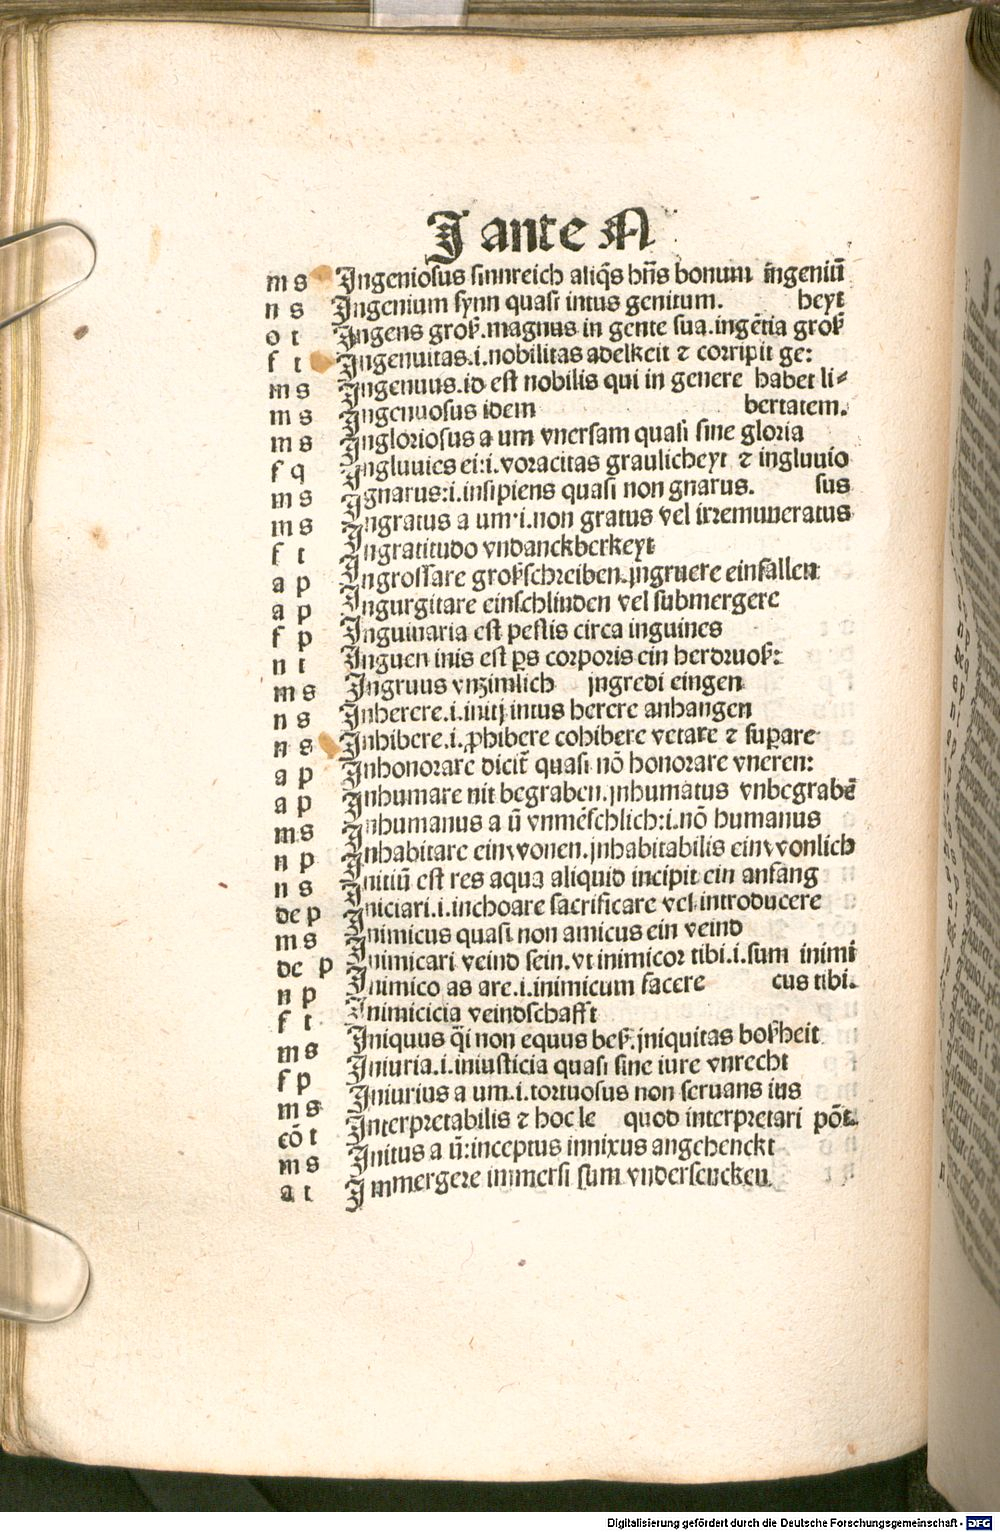 I ante N
m s Ingeniosus sinnreich aliq̃s hñs bonum ingeniũ
n s Ingenium synn quasi intus genitum. heyt
o t Ingens groß.magnus in gente sua.ingẽtia groß
f t Ingenuitas.i.nobilitas adelkeit ⁊ corripit ge:
m s Ingenuus.id est nobilis qui in genere habet li⸗
m s Ingenuosus idem bertatem.
m s Ingloriosus a um vnersam quasi sine gloria
f q Ingluuies ei:i.voracitas graulicheyt ⁊ ingluuio
m s Ignarus:i.insipiens quasi non gnarus. sus
m s Ingratus a um.i.non gratus vel irremuneratus
f t Ingratitudo vndanckberkeyt
a p Ingrossare großschreiben.jngruere einfallen
a p Ingurgitare einschlinden vel submergere
f p Inguinaria est pestis circa inguines
n t Inguen inis est ꝑs corporis ein herdruoß:
m s Ingruus vnzimlich jngredi eingen
n s Inherere.i.initj intus herere anhangen
n s Inhibere.i.ꝓhibere cohibere vetare ⁊ suꝑare
a p Inhonorare dicit̃ quasi nõ honorare vneren:
a p Inhumare nit begraben.jnhumatus vnbegrabẽ
m s Inhumanus a ũ vnmẽschlich:i.nõ humanus
n p Inhabitare einwonen.jnhabitabilis einwonlich
n s Initiũ est res aqua aliquid incipit ein anfang
de p Iniciari.i.inchoare sacrificare vel introducere
m s Inimicus quasi non amicus ein veind
de p Inimicari veind sein.vt inimicor tibi.i.sum inimi
n p Inimico as are.i.inimicum facere cus tibi.
f t Inimicicia veindschafft
m s Iniquus q̃i non equus beß.jniquitas boßheit
f p Iniuria.i.iniusticia quasi sine iure vnrecht
m s Iniurius a um.i.tortuosus non seruans ius
cõ t Interpretabilis ⁊ hoc le quod interpretari põt.
m s Initus a ũ:inceptus innixus angehenckt
a t Immergere immersi sum vndersencken
Digitalisierung gefördert durch die Deutsche Forschungsgemeinschaft - DFG